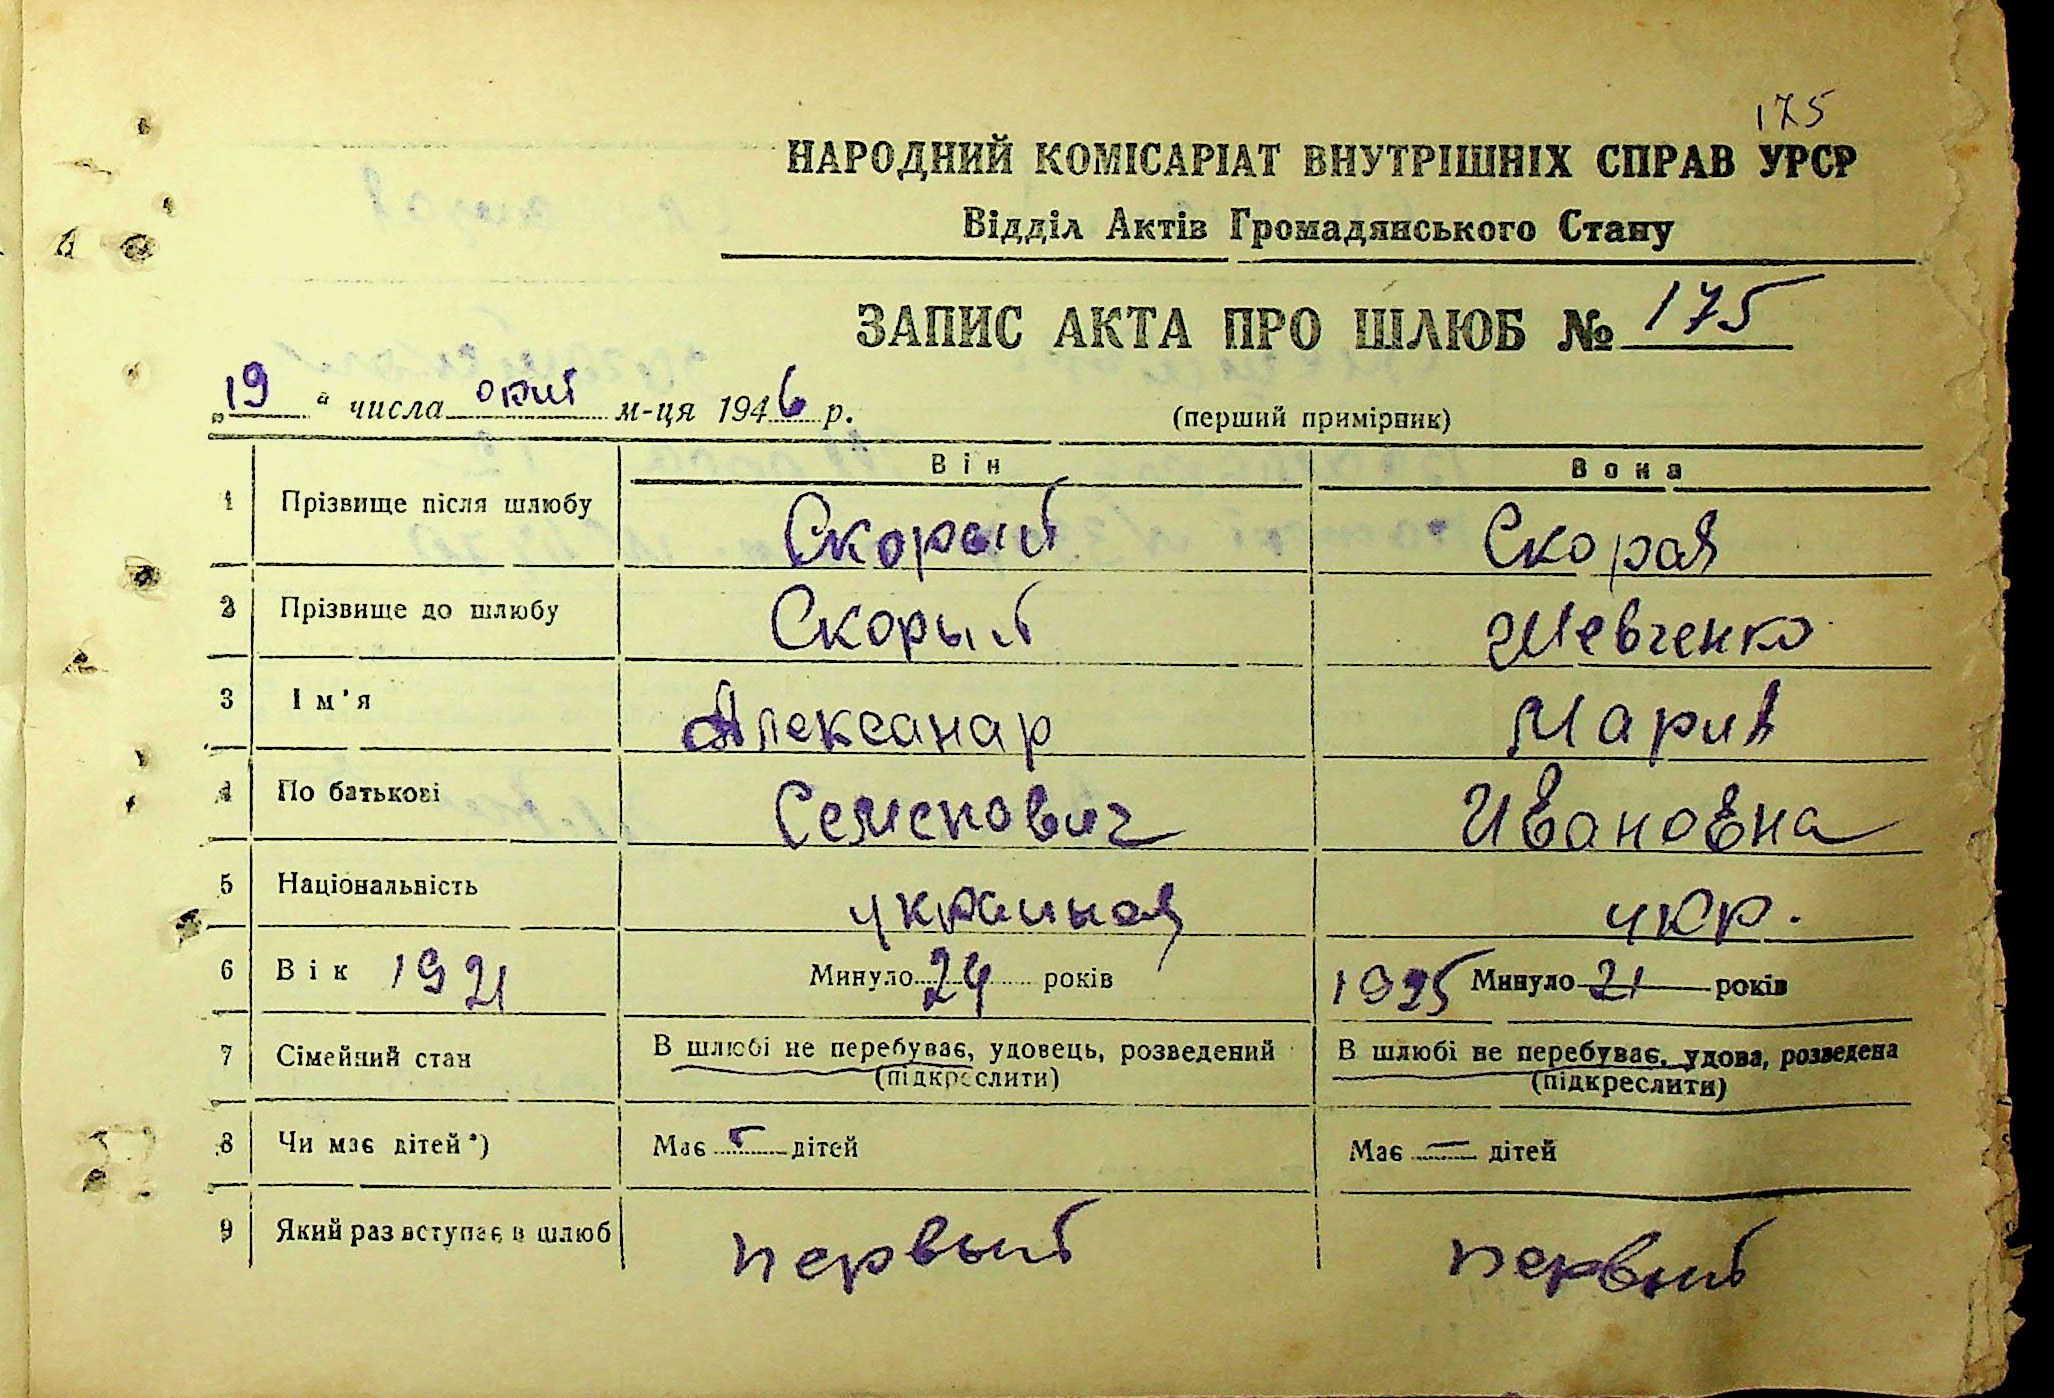 175
НАРОДНИЙ КОМІСАРІАТ ВНУТРІШНІХ СПРАВ УРСР
Відділ Актів Громадянського Стану
ЗАПИС АКТА ПРО ШЛЮБ № 175
„19“ числа м-ця 1946 р. (перший примірник)
Він Вона
1 Прізвище після шлюбу Скорый Скорая
2 Прізвище до шлюбу Скорый Шевченко
3 Ім'я Александр Мария
4 По батькові Семенович Ивановна
5 Національність укр.
6 Вік 1921 Минуло 24 років 1925 Минуло 21 років
7 Сімейний стан В шлюбі не перебуває, удовець, розведений В шлюбі не перебуває, удова, розведена
(підкреслити) (підкреслити)
8 Чи має дітей*) Має — дітей Має — дітей
9 Який раз вступає в шлюб первый первый